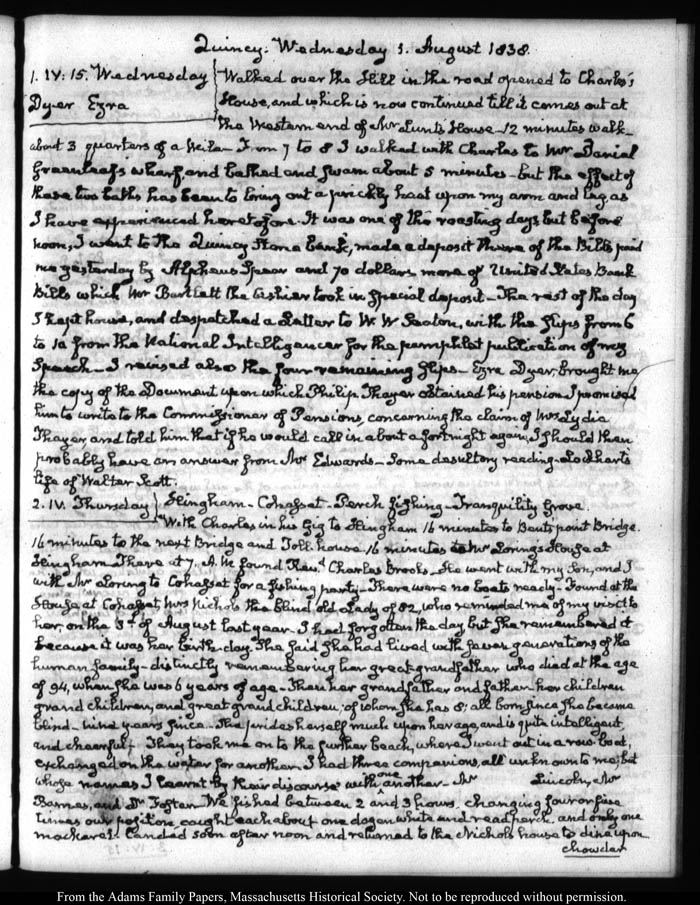 Quincy. Wednesday 1. August 1838.
1. IV: 15. Wednesday
Dyer Ezra
Walked over the Hill in the road opened to Charles's
House, and which is now continued till it comes out at
the Western end of Mr Lunt's House - 12 minutes walk -
about 3 quarters of a Mile - From 7 to 8 I walked with Charles to Mr Daniel
Greenleaf's wharf and bathed and swam about 5 minutes - but the effect of
these two baths has been to bring out a prickly heat upon my arm and leg as
I have experienced heretofore. It was one of the roasting days, but before
noon, I went to the Quincy Stone Bank, made a deposit there of the Bills paid
me yesterday by Alpheus Spear and 70 dollars more of United States Bank
Bills which Mr Bartlett the Cashier took in special deposit - The rest of the day
I kept house, and despatched a Letter to W. W. Seaton, with the slips from 6
to 10 from the National Intelligencer for the pamphlet publication of my
Speech - I revised also the four remaining slips - Ezra Dyer, brought me
the copy of the Document upon which Philip Thayer obtained his pension. I promised
him to write to the Commissioner of Pensions, concerning the claim of Mrs Lydia
Thayer, and told him that if he would call in about a fortnight again, I should then
probably have an answer from Mr Edwards - Some desultory reading - Lockhart's
life of Walter Scott.
2. IV. Thursday
Hingham - Cohasset - Perch fishing - Tranquility Grove.
With Charles in his Gig to Hingham 16 minutes to Bents point Bridge.
16 minutes to the next Bridge and Toll house. 16 minutes to Mr Loring's House at
Hingham. There at 7. A.M. found Revd Charles Brooks. He went with my Son, and I
with Mr Loring to Cohasset for a fishing party - There were no boats ready - Found at the
House at Cohasset, Mrs Nichols the blind old Lady of 82, who reminded me of my visit to
her, on the 3d of August last year. I had forgotten the day, but she remembered it
because it was her birth-day. She said she had lived with seven generations of the
human family - distinctly remembering her great grandfather who died at the age
of 94, when she was 6 years of age - Then her grandfather and father her children
grand children, and great grand children, of whom she has 8, all born since she became
blind - nine years since - She prides herself much upon her age, and is quite intelligent,
and cheerful - They took me on to the further beach, where I went out in a row-boat,
exchanged on the water for another. I had three companions, all unknown to me, but
whose names I learnt by their discourse with one another - Mr Lincoln, Mr
Barnes, and Dr Foster. We fished between 2 and 3 hours, changing four or five
times our position, caught each about one dozen white and read perch, and only one
mackarel. Landed soon after noon and returned to the Nichols house to dine upon
chowder
From the Adams Family Papers, Massachusetts Historical Society. Not to be reproduced without permission.